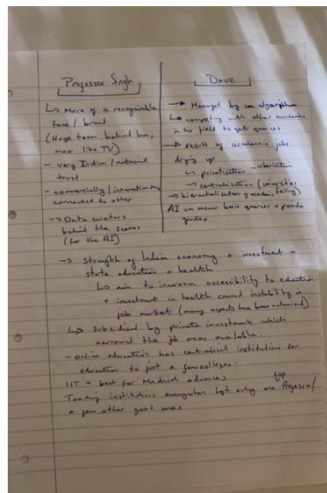 Professor Singh
↳ More of a recognisable
face / brand
(Huge team behind him,
more like TV)
- Very Indian / national
trust
- commercially / internationally
connected to other
↳ Data curators
behind the scenes
(for the AI)
Dave
→ Managed by an algorithm
↳ competing with other academics
in his field to get queries
→ Result of academic jobs
drying up
→ privatisation - uberisation
→ centralisation (universities)
→ hierarchicalisation of
AI can answer basic queries + provide
guides
→ Strength of Indian economy + investment in
state education + health
↳ aim to increase accessibility to education
+ investment in health caused instability in
job market (many aspects have been)
↳ Subsidised by private investment which
narrowed the job areas available.
- Online education has centralised institutions for
education to just a few colleges.
IIT = best for Medical advances
Teaching institutions everywhere but only one top Professor /
a few other good ones